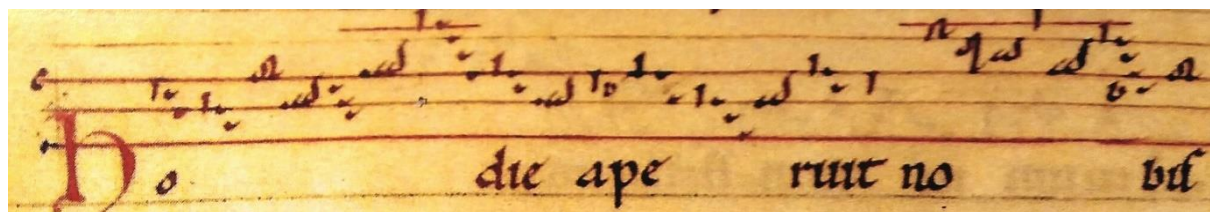 Ho die ape ruit no bis